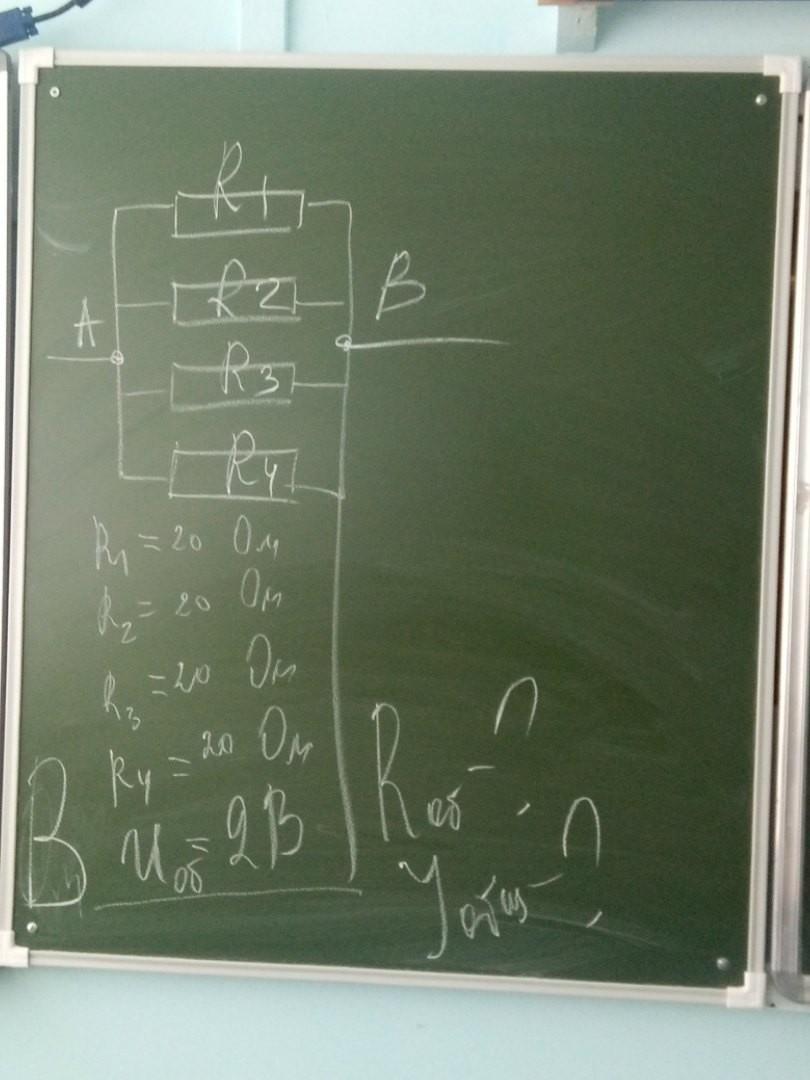 R1
R2
A
B
R3
R4
R1 = 20 Ом
R2 = 20 Ом
R3 = 20 Ом
R4 = 20 Ом
В Uоб = 2В
Rоб - ?
Jобщ - ?